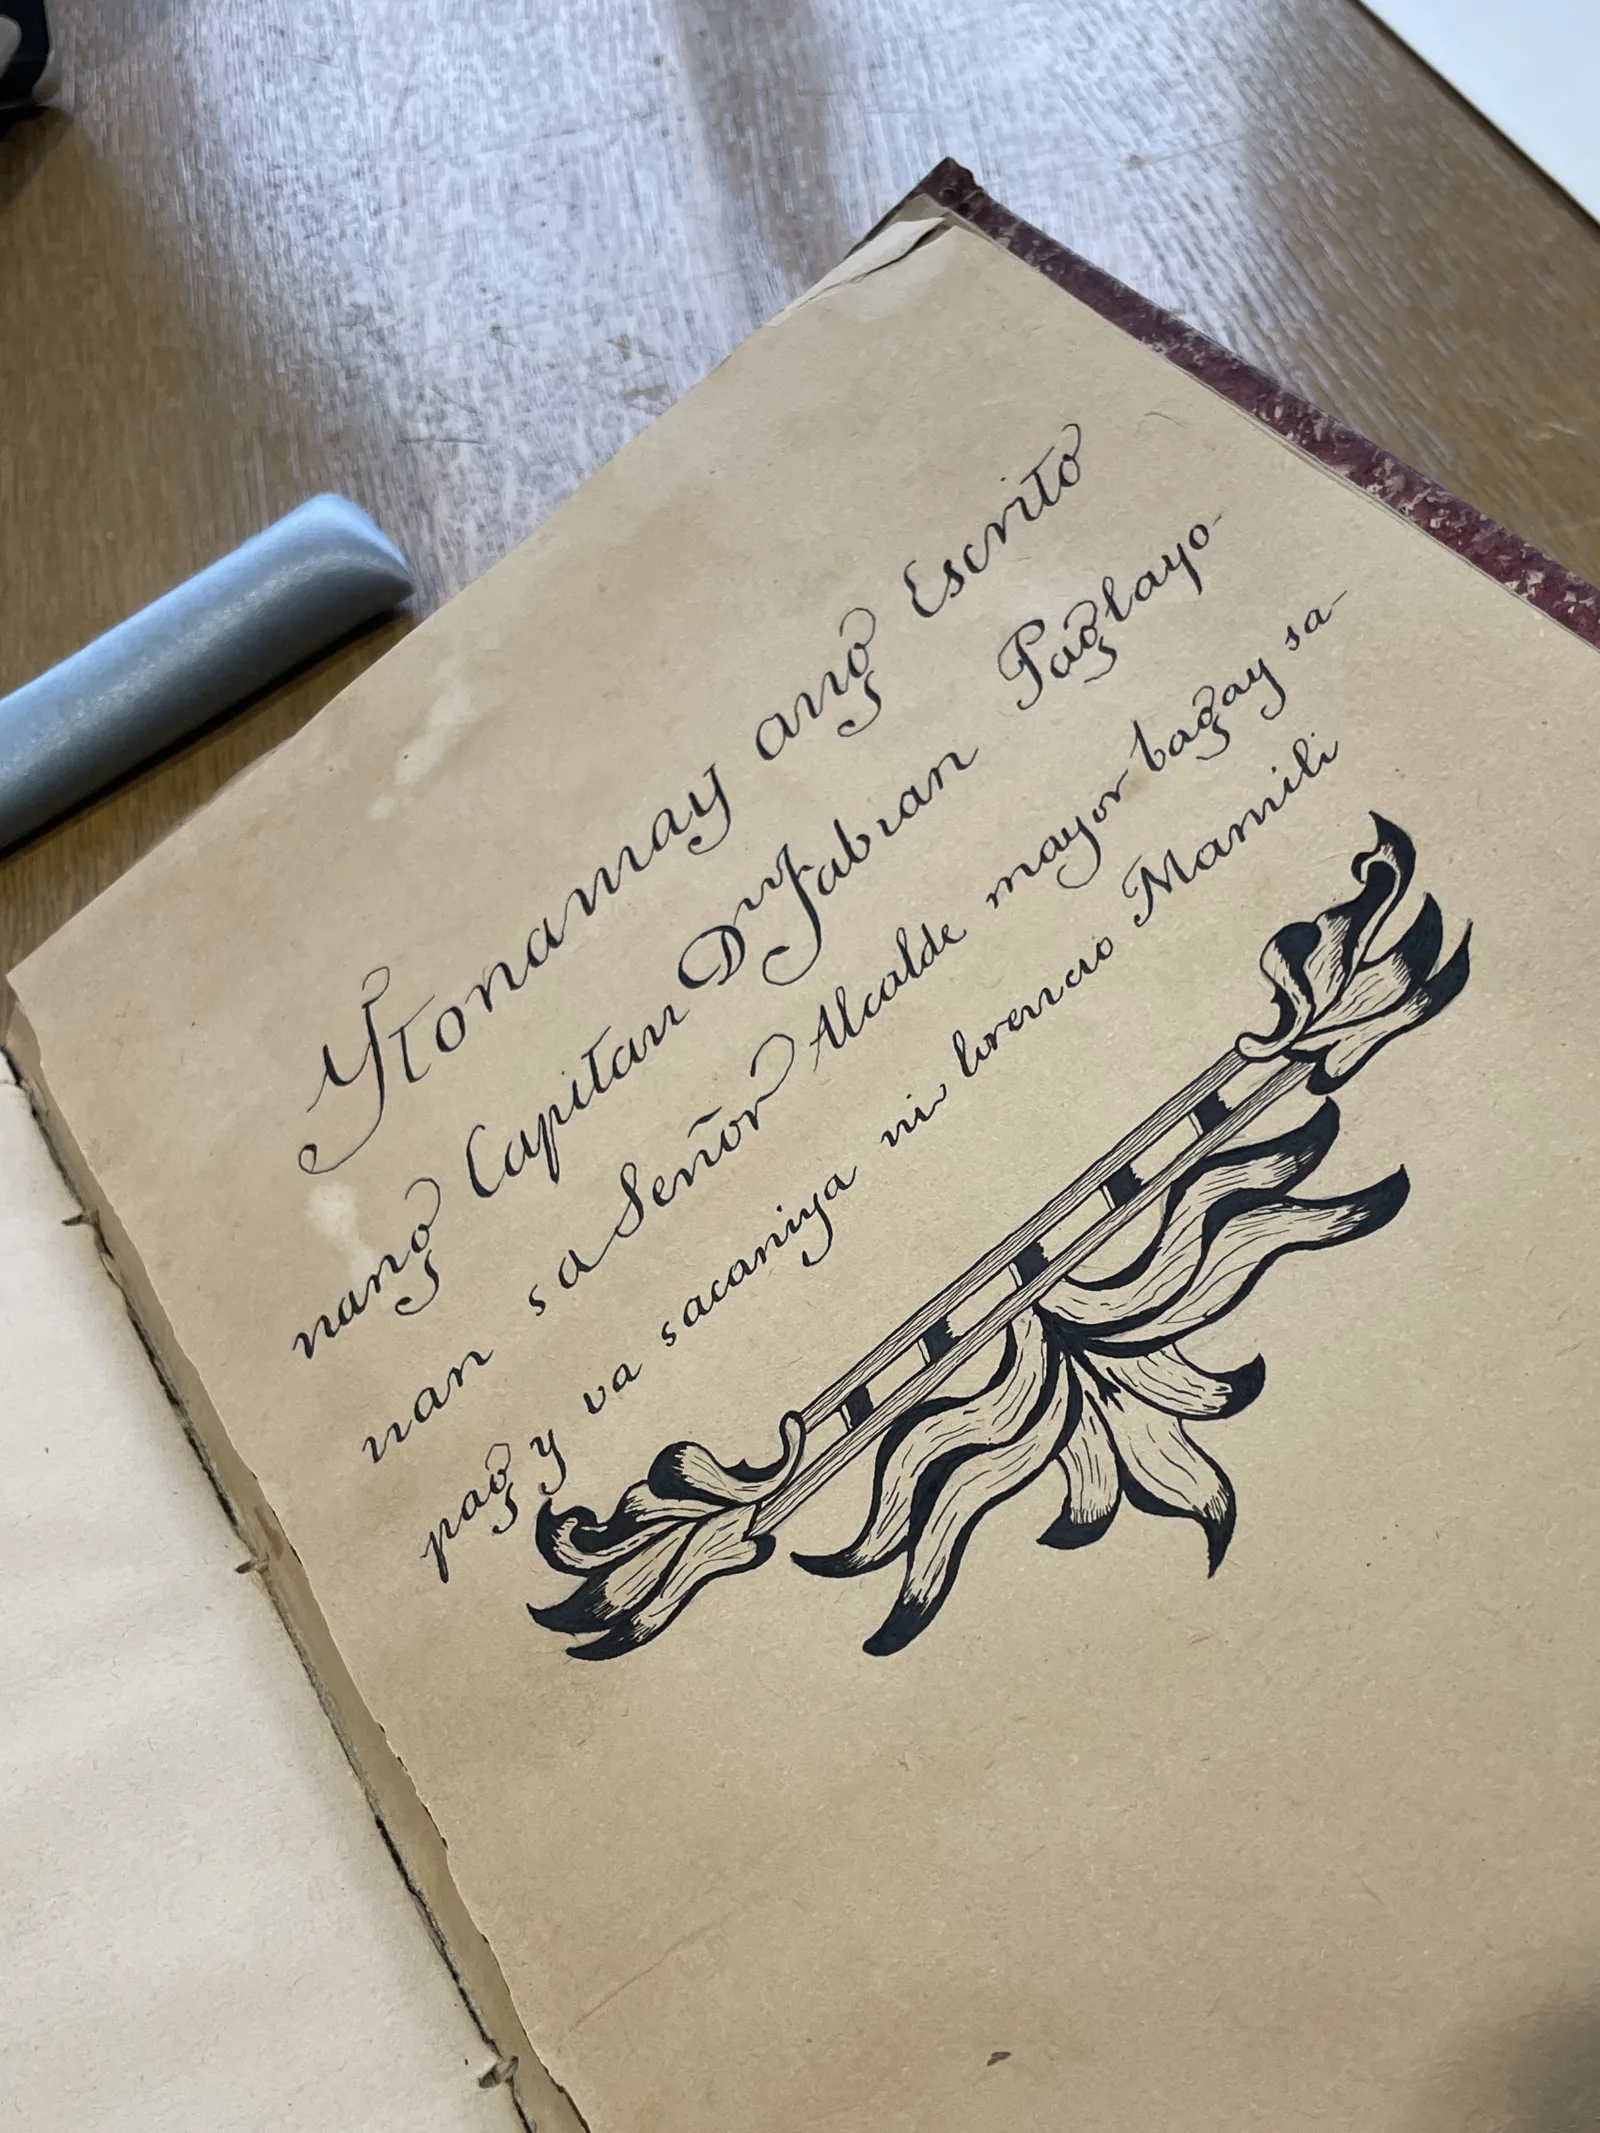 Ytonamay ang̃ Escrito
nang̃ Capitan Dn Fabian Pag̃layo-
nan sa Señor Alcalde mayor bag̃ay sa-
pag̃ y va sacaniya ni lorencio Mamili